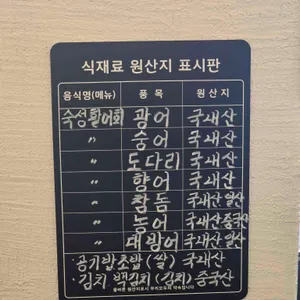 식재료 원산지 표시판
음식명(메뉴) 품 목 원 산 지
숙성활어회 광어 국내산
" 숭어 국내산
" 도다리 국내산
" 향어 국내산
" 참돔 국내산 일산
" 농어 국내산 중국산
" 대방어 국내산 일산
· 공기밥초밥 (쌀) 국내산
· 김치 백김치 (김치) 중국산
올바른 원산지표시 우리모두의 약속입니다